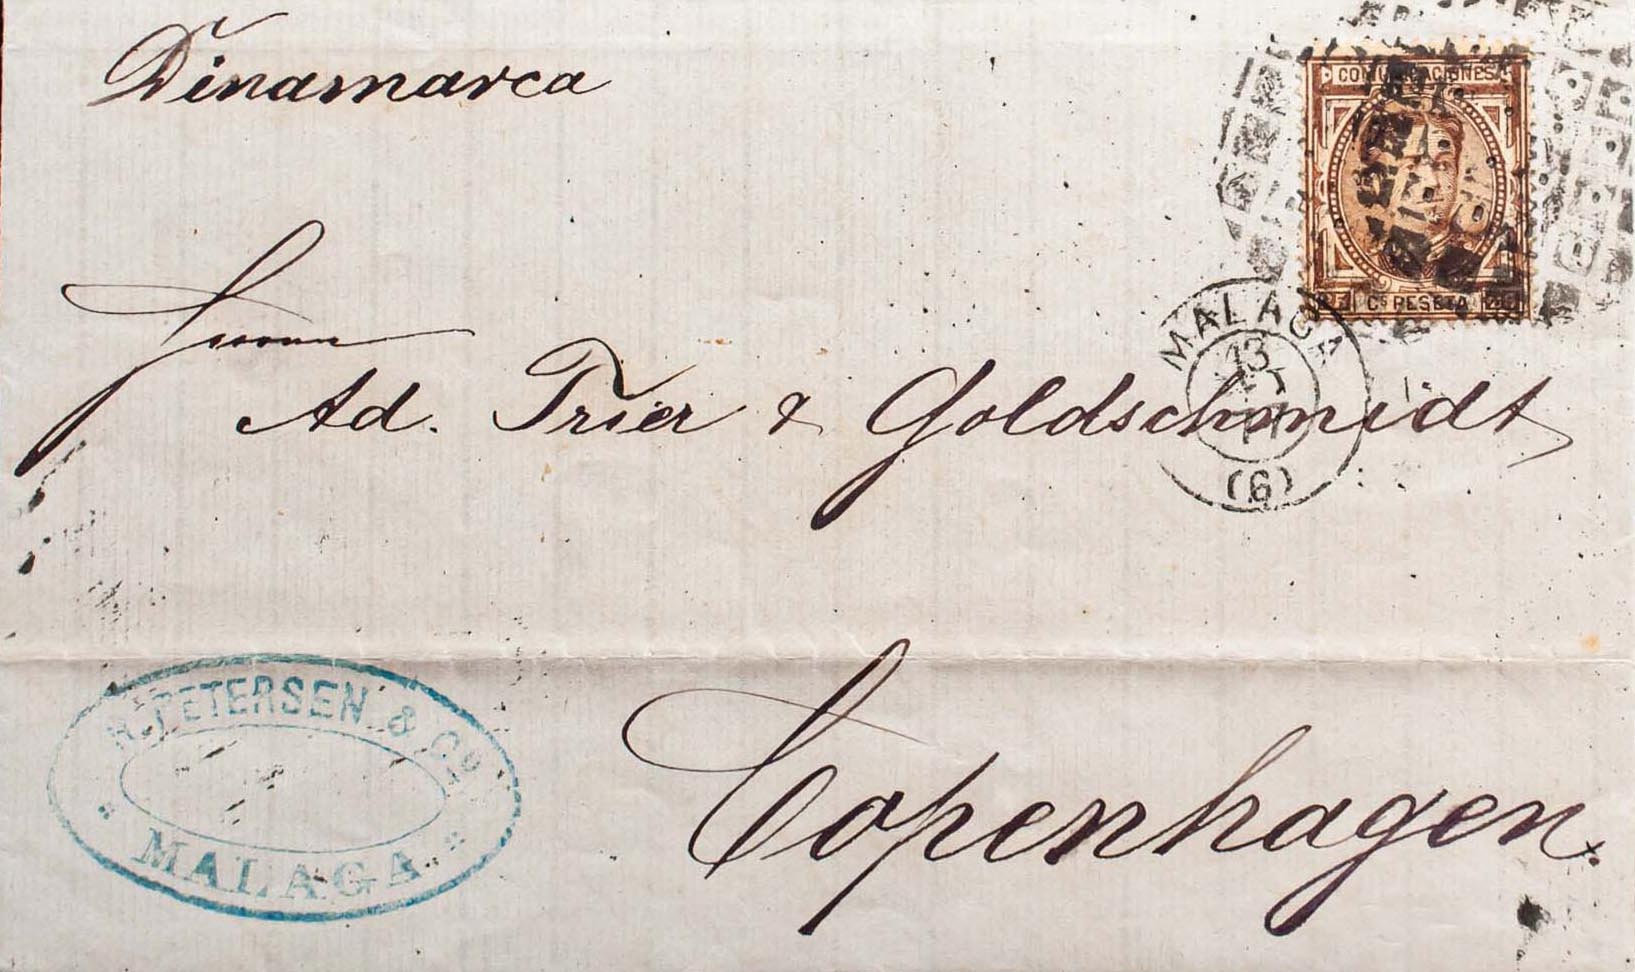 Dinamarca
COMUNICACIONES
25 Cs PESETA 25
Herrn
Ad. Trier & Goldschmidt
MALAGA
13
(6)
Copenhagen.
PETERSEN & Co
MALAGA